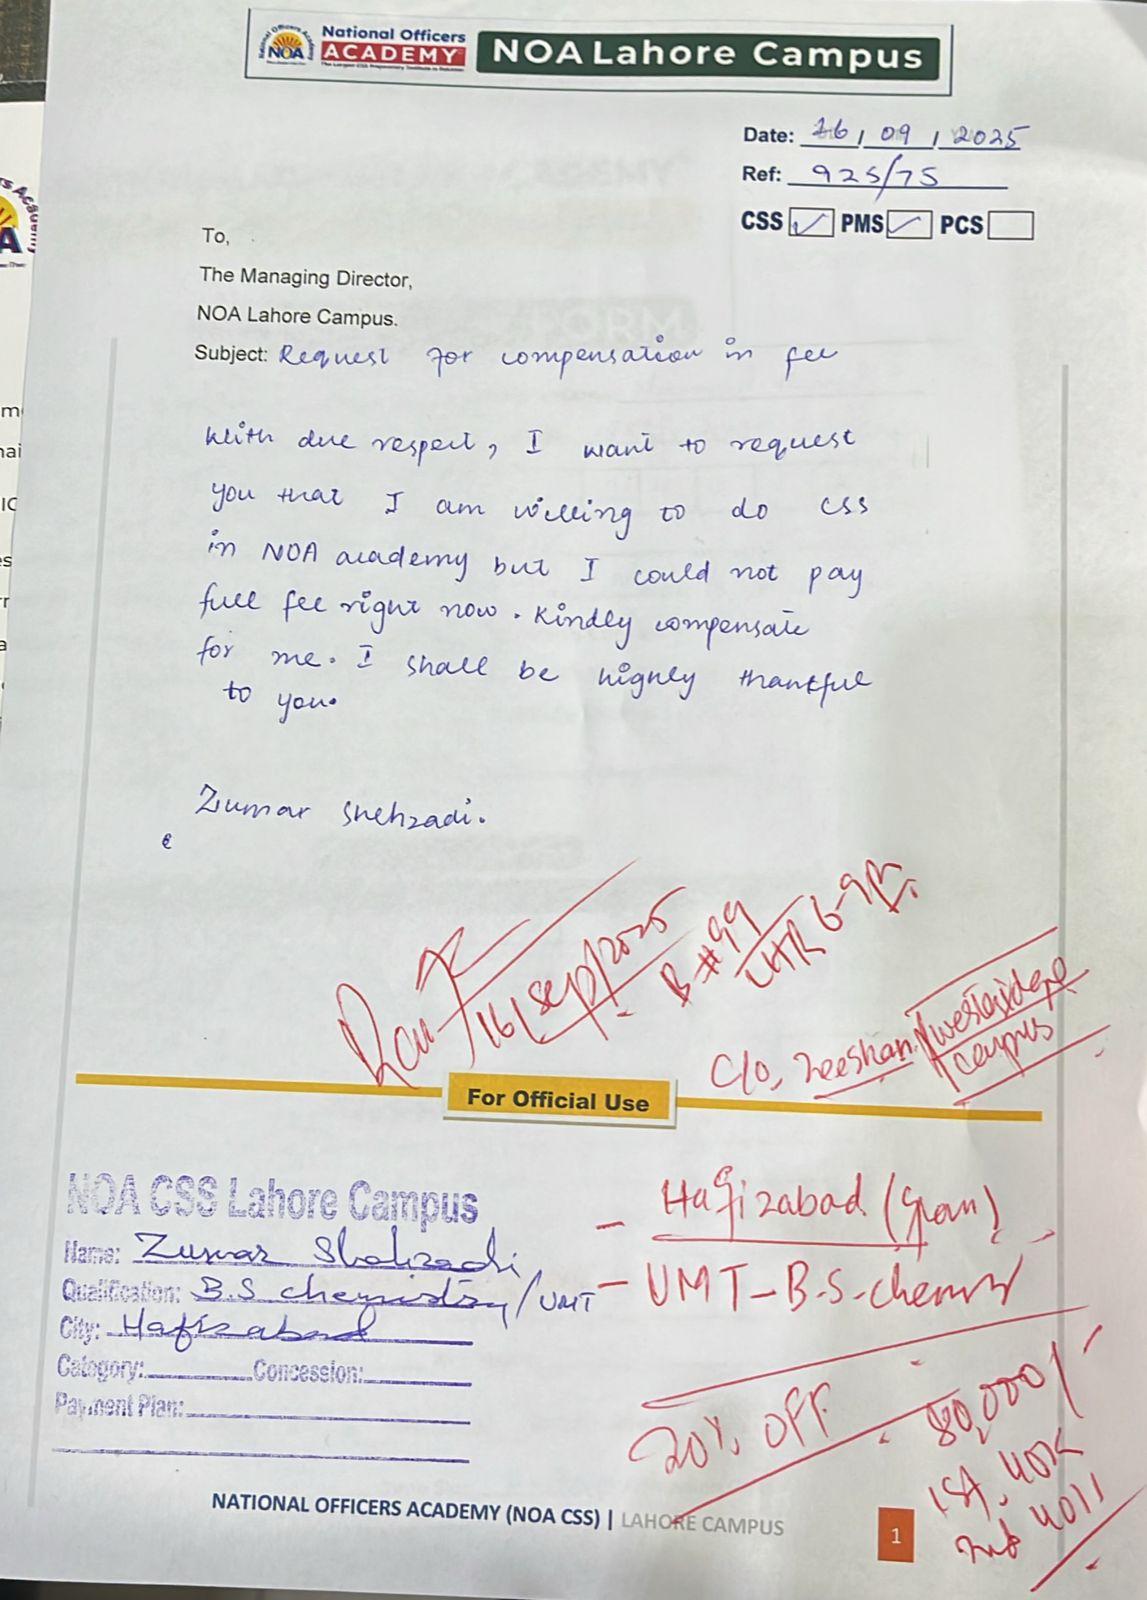 National Officers
ACADEMY
NOA
NOA Lahore Campus
Date: 16/09/2025
Ref: 925/75
CSS ✓ PMS ✓ PCS
To,
The Managing Director,
NOA Lahore Campus.
Subject: Request for compensation in fee
With due respect, I want to request
you that I am willing to do CSS
in NOA academy but I could not pay
full fee right now. Kindly compensate
for me. I shall be highly thankful
to you.
Zumar Shehzadi.
16/Sep/2025
B#99
LHR 6-9
C/o, Zeeshan / Westridge
Campus
For Official Use
NOA CSS Lahore Campus
Name: Zumar Shahzadi
Qualification: B.S chemistry/UMT
City: Hafizabad
Category: Concession:
Payment Plan:
- Hafizabad
- UMT-B.S-Chemist
20% OFF.
80,000/-
1st. 40k
2nd 40
NATIONAL OFFICERS ACADEMY (NOA CSS) | LAHORE CAMPUS
1